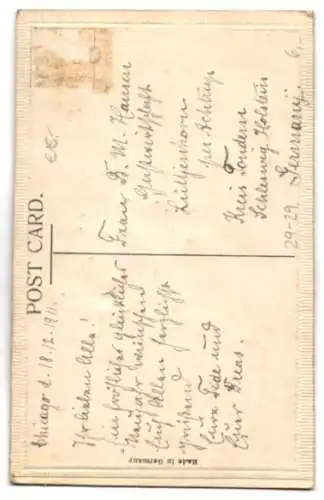 POST CARD.
Chicago d. 18.12.1911.
Ihr lieben Alle!
Ein fröhliches glückliches
Neujahr wünschen
Euch Allen herzlichst
grüßend
Eure Tide und
Euer Dreas.
Frau B. M. Hansen
Gastwirtschaft
Lütjenhorn
per Achtrup
Kreis Tondern
Schleswig Holstein
Germany
6,-
29-29
e8.-
Made in Germany